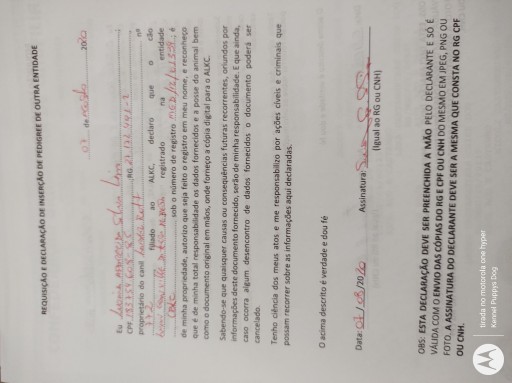 REQUISIÇÃO E DECLARAÇÃO DE INSERÇÃO DE PEDIGREE DE OUTRA ENTIDADE
07 de 2020
Eu
CPF RG
proprietário do canil nº
filiado ao ALKC, declaro que o cão
registrado na entidade
sob o número de registro é
de minha propriedade, autorizo que seja feito o registro em meu nome, e reconheço
que é de minha total responsabilidade os dados fornecidos e a posse do animal bem
como o documento original em mãos, onde forneço a cópia digital para o ALKC.
Sabendo-se que quaisquer causas ou consequências futuras recorrentes, oriundos por
informações deste documento fornecido, serão de minha responsabilidade. E que ainda,
caso ocorra algum desencontro de dados fornecidos o documento poderá ser
cancelado.
Tenho ciência dos meus atos e me responsabilizo por ações cíveis e criminais que
possam recorrer sobre as informações aqui declaradas.
O acima descrito é verdade e dou fé
Data: 07/08/2020 Assinatura:
(Igual ao RG ou CNH)
OBS: ESTA DECLARAÇÃO DEVE SER PREENCHIDA A MÃO PELO DECLARANTE E SÓ É
VÁLIDA COM O ENVIO DAS CÓPIAS DO RG E CPF OU CNH DO MESMO EM JPEG, PNG OU
FOTO. A ASSINATURA DO DECLARANTE DEVE SER A MESMA QUE CONSTA NO RG CPF
OU CNH.
tirada no motorola one hyper
Kennel Puppys Dog